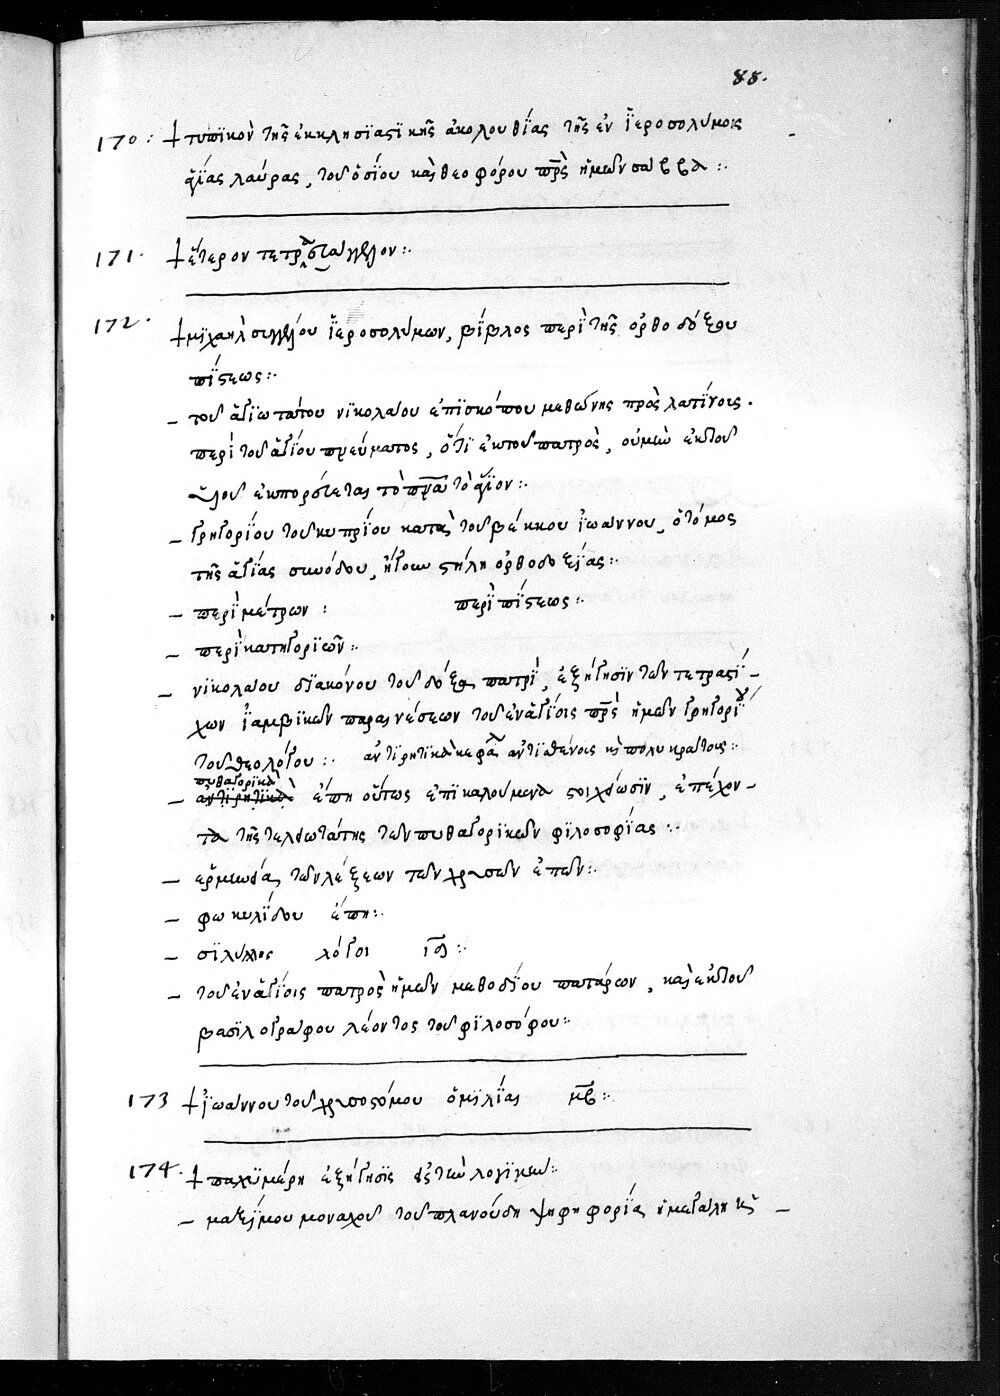 88.
170: † τυπϊκὸν τῆς ἐκκλησϊαςϊκῆς ἀκολουθΐας τῆς ἐν ἱ̈εροσολύμοις
ἁγΐας λαύρας, τοῦ ὁσΐου καὶ θεοφόρου πρ̅ς̀ ἡμῶν σάββα :.
171. † ἕτερον τετραευάγγελον :.
172. † μϊχαὴλ συγγέλου ἱ̈εροσολύμων, βΐβλος περὶ̈ τῆς ὀρθοδόξου
πΐςεως :.
– τοῦ ἁγϊωτάτου νϊκολάου ἐπϊσκόπου μεθώνης πρὸς λατΐνοις.
περὶ τοῦ ἁγΐου πνεύματος, ὅτϊ ἐκ τοῦ πατρὸς, οὐ μὴν ἐκ τοῦ
ὑϊοῦ ἐκπορεύεται τὸ πν̅α τὸ ἅγϊον :.
– γρηγορΐου τοῦ κυπρΐου κατὰ τοῦ βέκκου ἰ̈ωάννου, ὁ τόμος
τῆς ἁγΐας συνόδου, ἤτοι ςήλη ὀρθοδοξΐας :.
– περὶ̈ μέτρων : περὶ̈ πΐςεως :.
– περὶ̈ κατηγορϊῶν :.
– νϊκολάου δϊακόνου τοῦ δόξα πατρὶ̈, ἐξήγησϊν τῶν τετραςΐ –
χων ἰ̈αμβϊκῶν παραινέσεων τοῦ ἐν ἁγΐοις πρ̅ς̀ ἡμῶν γρηγορΐου
τοῦ θεολόγου :. ἀντϊρητϊκὰ κεφά ἀντϊσθένοις καὶ πολυκράτους :.
πυθαγορϊκὰ
– ἀντϊρητϊκὰ ἔπη οὕτως ἐπϊκαλούμενα ςοιχείωσϊν, ἐπέχον –
τα τῆς τελεωτάτης τῶν πυθαγορϊκῶν φϊλοσοφΐας :.
– ἑρμηνεία, τῶν λέξεων τῶν χρυσῶν ἐπῶν :.
– φωκυλΐδου ἔπη :.
– σϊβύλλης λόγοι ιδ :.
– τοῦ ἐν ἁγΐοις πατρὸς ἡμῶν μεθοδΐου πατάρων, καὶ ἐκ τοῦ
βασϊλογράφου λέοντος τοῦ φϊλοσόφου :.
173 † ἰ̈ωάννου τοῦ χρυσοςόμου ὁμϊλΐαι κ̅β̅ :.
174. † παχϋμέρη ἐξήγησϊς εἰς τῶν λογϊκῶν :.
– μαξΐμου μοναχοῦ τοῦ πλανούδη ψηφηφορΐα ἡ μεγάλη καὶ –